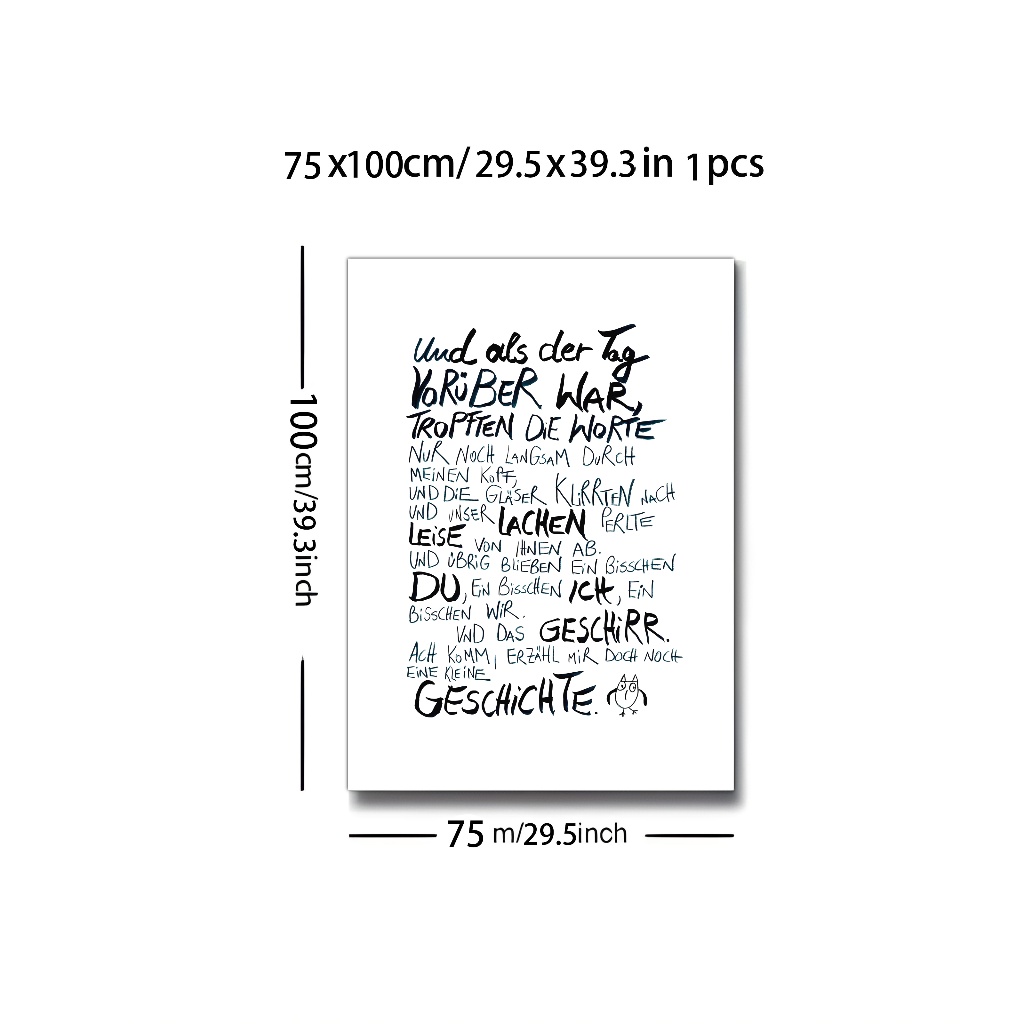 75x100cm/29.5x39.3in 1pcs
100cm/39.3inch
Und als der Tag
VORÜBER WAR,
TROPFTEN DIE WORTE
NUR NOCH LANGSAM DURCH
MEINEN KOPF,
UND DIE GLÄSER KLIRRTEN NACH
UND UNSER LACHEN PERLTE
LEISE VON IHNEN AB.
UND ÜBRIG BLIEBEN EIN BISSCHEN
DU, EIN BISSCHEN ICH, EIN
BISSCHEN WIR.
UND DAS GESCHIRR.
ACH KOMM, ERZÄHL MIR DOCH NOCH
EINE KLEINE
GESCHICHTE.
75 m/29.5inch